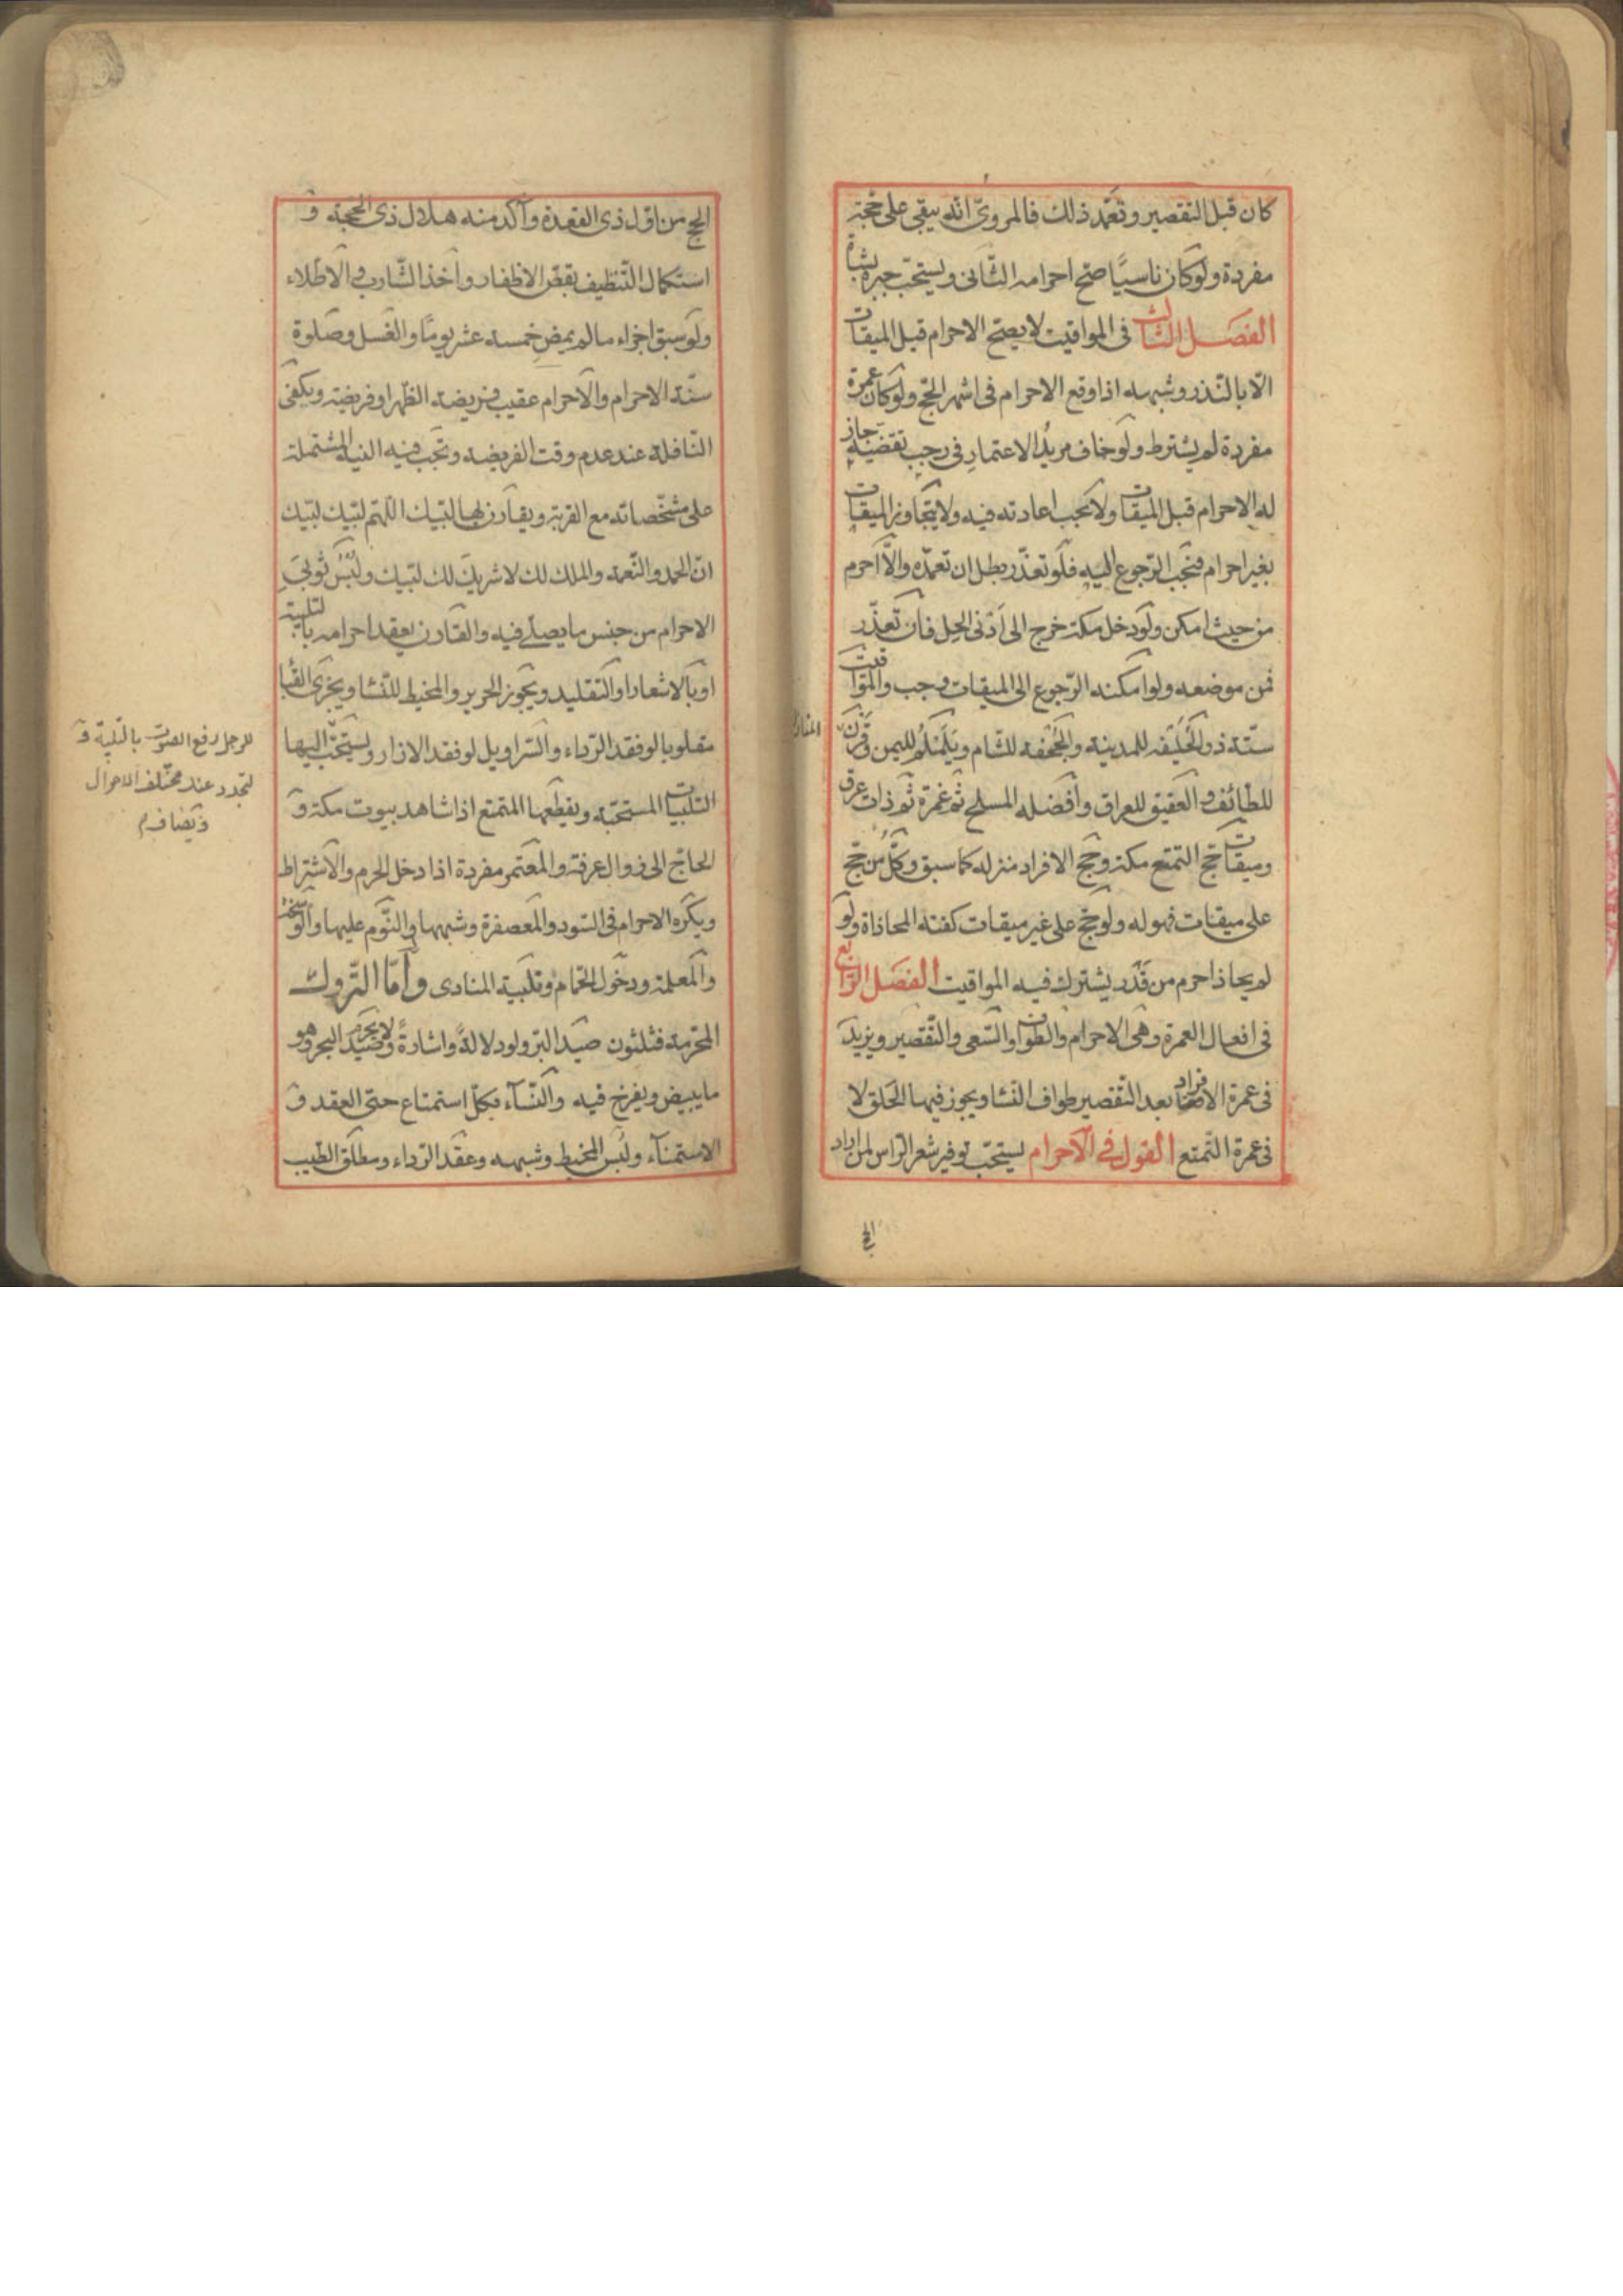 كان قبل التقصير وتعمد ذلك فالمروىّ انّه يبقى على حجّة
مفردة ولو كان ناسيًا صحّ احرامه الثّانى ويستحبّ جبره بشاة
الفصل الثالث فى المواقيت لا يصحّ الاحرام قبل الميقات
الّا بالنّذر وشبهه اذا وقع الاحرام فى اشهر الحجّ ولو كان عمرة
مفردة لم يشترط ولو خاف مريد الاعتمار فى رجب تقضيه جاز
له الاحرام قبل الميقات ولا يجب اعادته فيه ولا يتجاوز الميقات
بغير احرام فيجب الرّجوع اليه فلو تعذّر بطل ان تعمّده والّا احرم
من حيث امكن ولو دخل مكة خرج الى ادنى الحلّ فان تعذّر
فمن موضعه ولو امكنه الرّجوع الى الميقات وجب والمواقيت
ستّة ذو الحُلَيفه للمدينة والجُحفه للشّام ويَلَمْلَم لليمن وقَرْن
المنازل
للطّائف والعقيق للعراق وافضله المسلح ثم غمرة ثم ذات عرق
وميقات حجّ التمتع مكة وحجّ الافراد منزله كما سبق وكلّ من حجّ
على ميقات فهو له ولو حجّ على غير ميقات كفته المحاذاة ولو
لم يحاذ احرم من قدر يشترك فيه المواقيت الفصل الرّابع
فى افعال العمرة وهى الاحرام والطواف والسّعى والتّقصير ويزيد
فى عمرة الافراد بعد التّقصير طواف النّسا ويجوز فيها الحلق لا
فى عمرة التّمتع القول فى الاحرام يستحبّ توفير شعر الرّاس لمن اراد
الحج
الحج من اوّل ذى القعدة وآكد منه هلال ذى الحجة و
استكمال التّنظيف بقصّ الاظفار واخذ الشّارب والاطّلاء
ولو سبق اجزاء ما لم يمضِ خمسة عشر يومًا والغسل وصلوة
سنّة الاحرام والاحرام عقيب فريضة الظّهر او فريضة ويكفى
النّافلة عند عدم وقت الفريضة وتجب فيه النيّة المشتملة
على مشخّصاته مع القربة ويقارن بها لبّيك اللّهم لبّيك لبّيك
انّ الحمد والنّعمة والملك لك لا شريك لك لبّيك ولُبْسُ ثوبَيِ
الاحرام من جنس ما يصلّى فيه والقارن يعقد احرامه بالتلبية
او بالاشعار او التقليد ويجوز الحرير والمخيط للنّسا ويجزى القبا
مقلوبا لو فقد الرّداء والسّراويل لو فقد الازار ويستحبّ
للرجل رفع الصوت بالتلبية و
لتجدد عند مختلف الاحوال
ويضاف اليها
التلبيات المستحبّة ويقطعها المتمتع اذا شاهد بيوت مكة و
الحاجّ الى زوال عرفة والمعتمر مفردة اذا دخل الحرم والاشتراط
ويكره الاحرام فى السّود والمعصفرة وشبهها والنّوم عليها والوسخة
والمعلمة ودخول الحمّام وتلبية المنادى وامّا التّروك
المحرّمة فثلثون صيد البرّ ولو دلالةً واشارةً ولا يحرم صيد البحر وهو
ما يبيض ويفرخ فيه والنّسآء بكلّ استمتاع حتى العقد و
الاستمنآء ولُبس المخيط وشبهه وعقد الرّداء ومطلق الطّيب